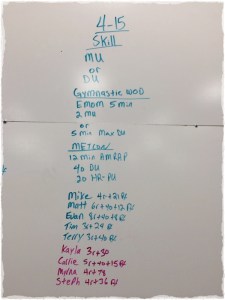 4-15
Skill
MU
or
DU
Gymnastic WOD
EMOM 5 min
2 MU
or
5 min Max DU
METCON
12 min AMRAP
40 DU
20 HR-PU
Mike 4r+21 Rx
Matt 6r+40+12 Rx
Evan 8r+40+8 Rx
Tim 3r+24 Rx
Terry 3r+40 Rx
Kayla 3r+30
Callie 5r+40+15 Rx
Myrna 4r+78
Steph 4r+26 Rx